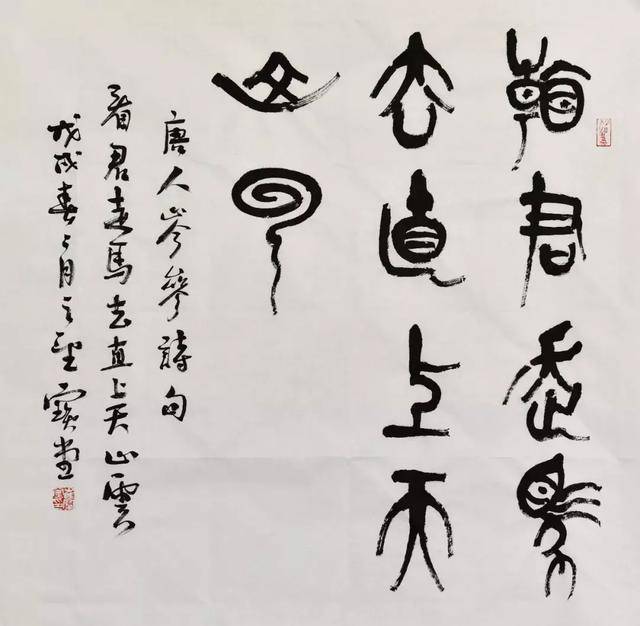 看君走馬
去直上天
山雲
唐人岑參詩句
看君走馬去直上天山雲
戊戌春二月之望寶堂